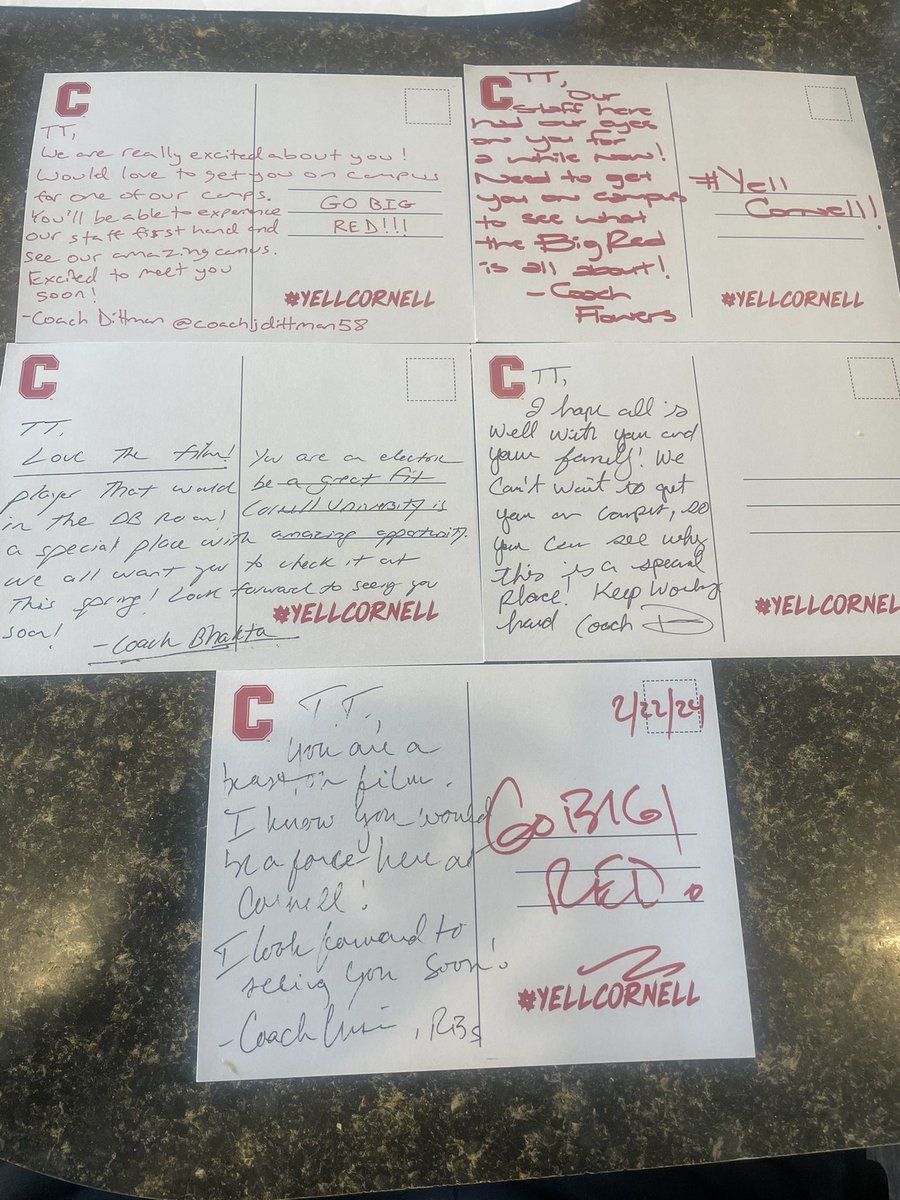 C
TT,
We are really excited about you!
Would love to get you on campus
for one of our camps.
You'll be able to experience
our staff first hand and
see our amazing camus.
Excited to meet you
soon!
-Coach Dittman @coachjdittman58
GO BIG
RED!!!
#YELLCORNELL
C
TT,
Our
staff here
had our eyes
on you for
a while now!
Need to get
you on campus
to see what
the Big Red
is all about!
- Coach
Flowers
#Yell
Cornell!
#YELLCORNELL
C
TT,
Love the film! You are an electric
player that would be a great fit
in the DB Room! Cornell University is
a special place with amazing opportunity.
we all want you to check it out
This spring! Look forward to seeing you
soon!
-Coach Bhakta
#YELLCORNELL
C
TT,
I hope all is
well with you and
your family! We
can't wait to get
you on campus, so
you can see why
this is a special
place! Keep working
hard Coach D
#YELLCORNEL
C
T.T.,
You are a
beast on film.
I know you would
be a force here at
Cornell!
I look forward to
seeing you soon!
-Coach , RBs
2/22/24
Go BIG
RED.
#YELLCORNELL